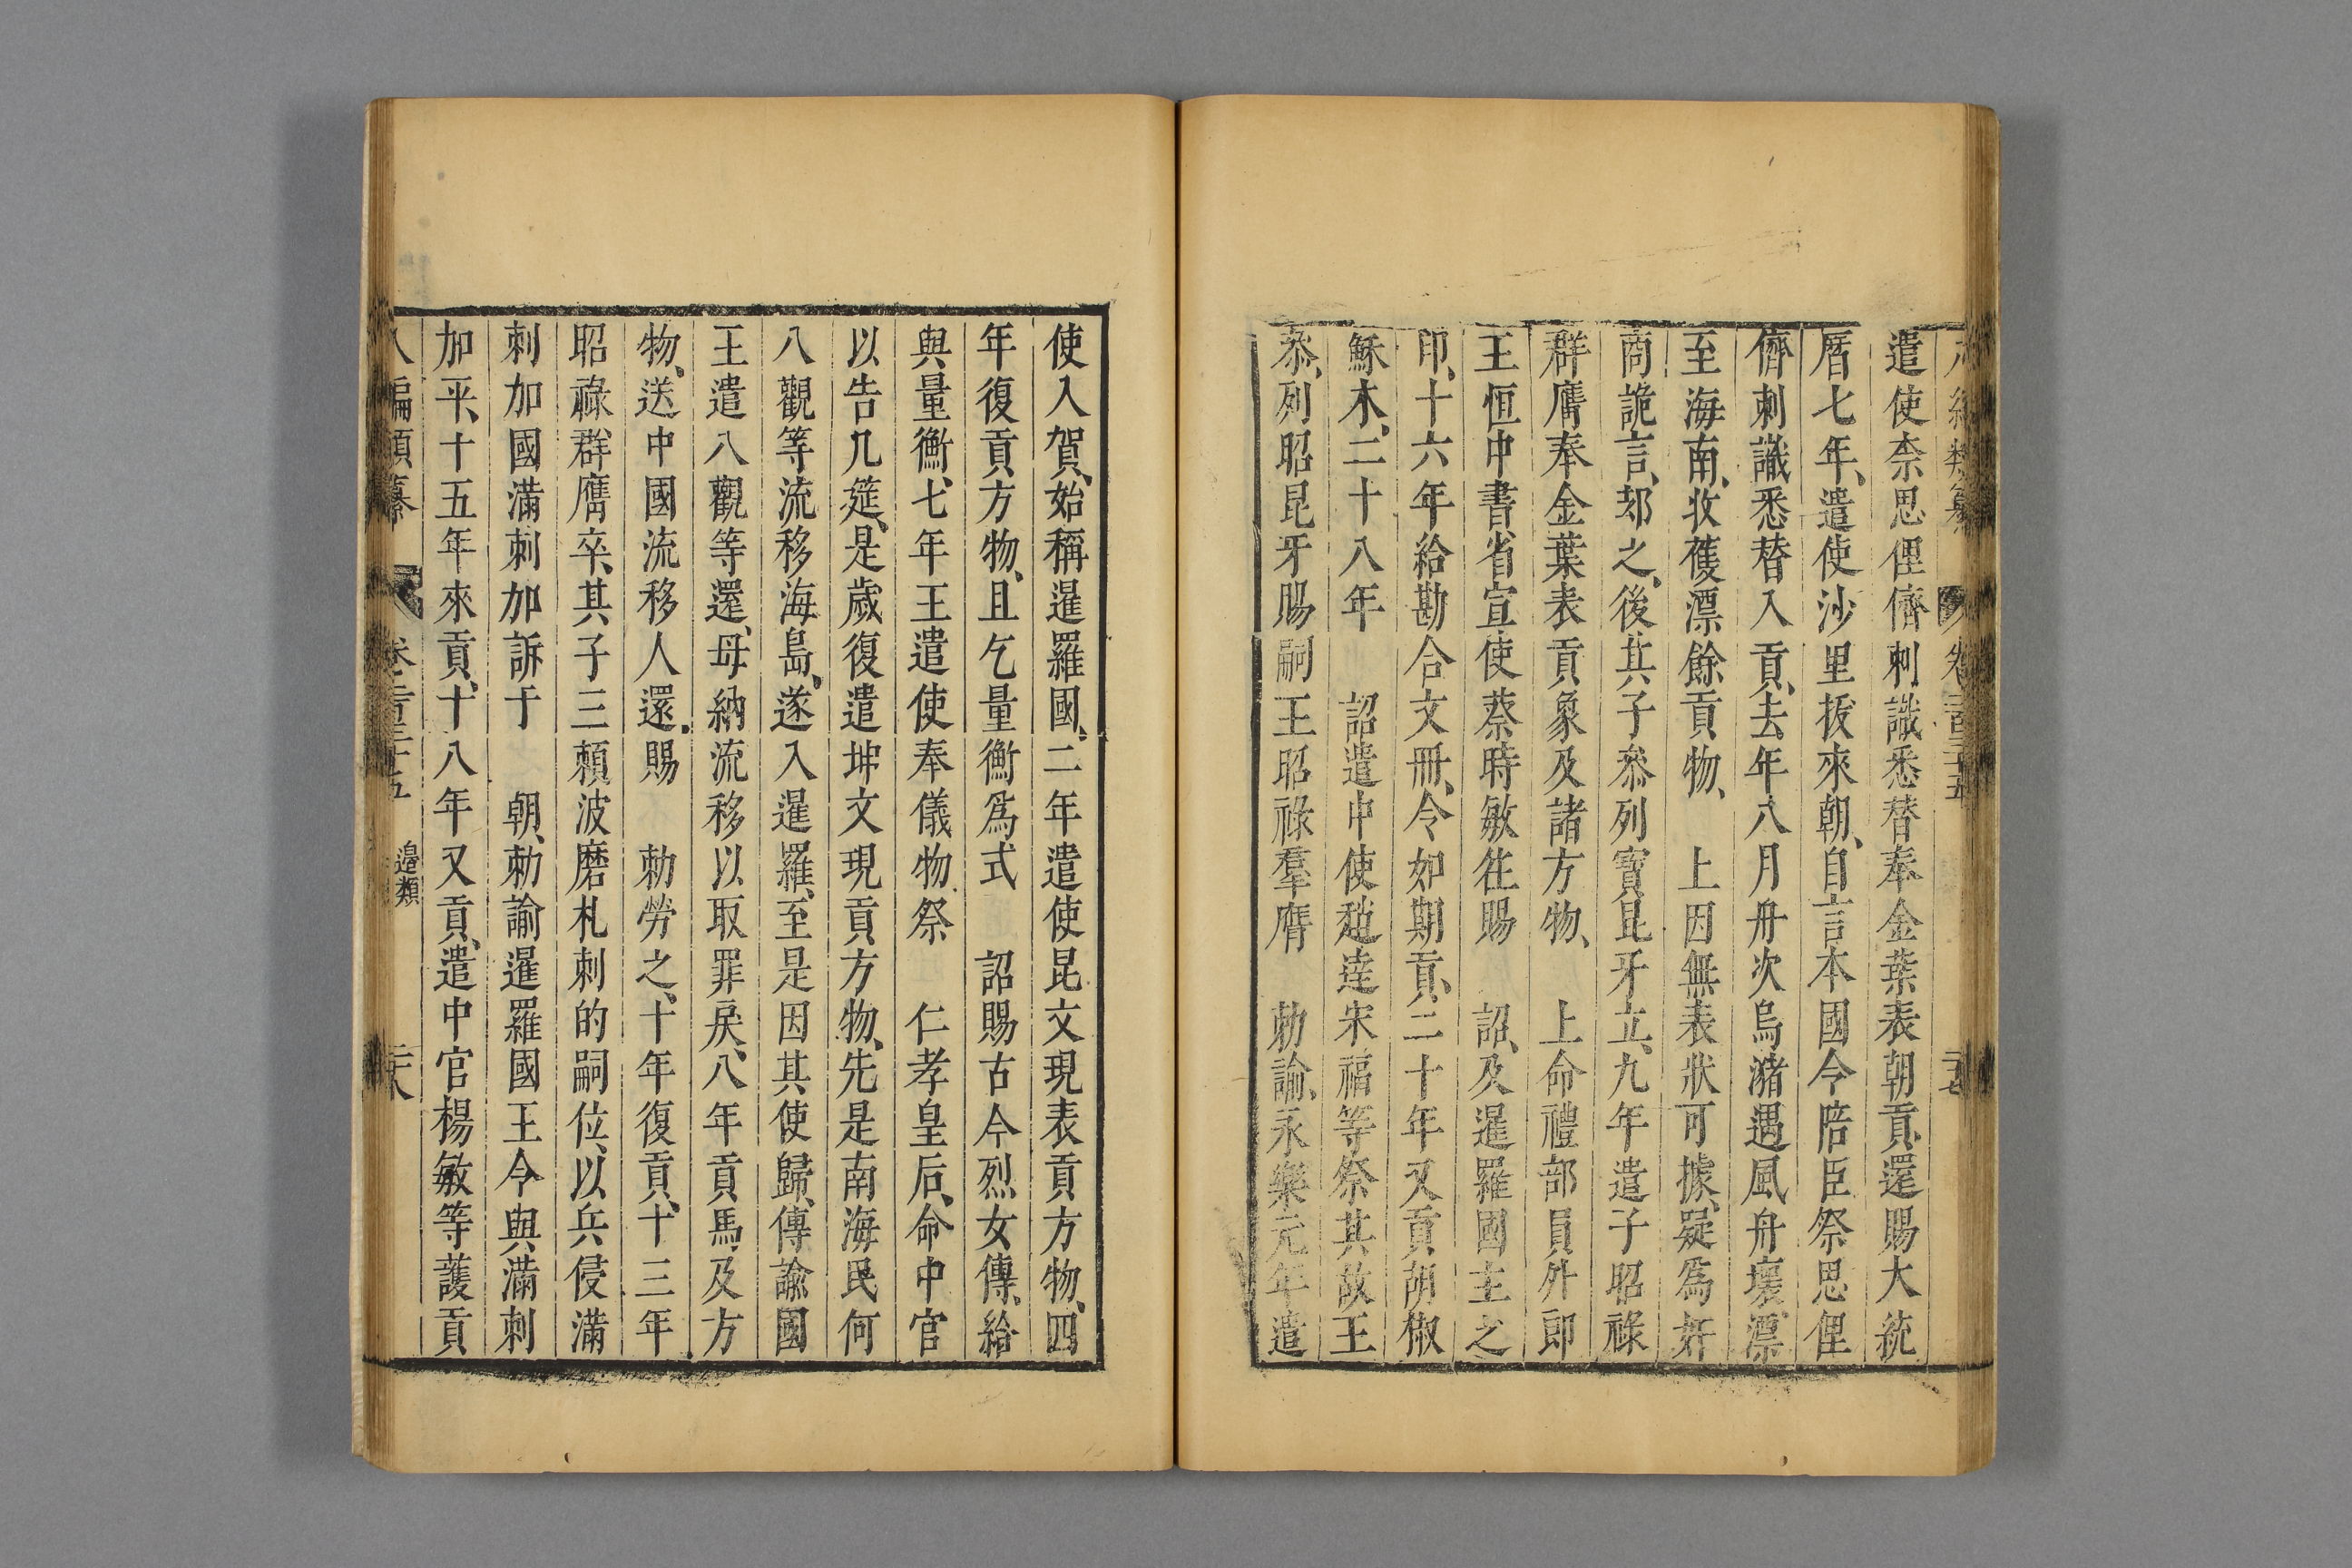 遣使柰思俚儕剌識悉替奉金葉表朝貢、還賜大統
曆七年、遣使沙里拔來朝、自言本國今陪臣祭思俚
儕剌識悉替入貢、去年八月舟次烏瀦遇風舟壞、漂
至海南、收獲漂餘貢物、 上因無表狀可據、疑爲奸
商詭言、却之、後其子叅列寳毘牙立、九年遣子昭祿
群膺奉金葉表貢象及諸方物、 上命禮部員外郎
王恒中書省宣使蔡時敏往賜 詔、及暹羅國主之
印、十六年給勘合文冊、令如期貢、二十年又貢胡椒
穌木、二十八年 詔遣中使趙達宋福等祭其故王
叅、列昭昆牙賜嗣王昭祿羣膺 勅諭、永樂元年遣
使入賀、始稱暹羅國、二年遣使昆文現表貢方物、四
年復貢方物、且乞量衡爲式 詔賜古今烈女傳、給
與量衡、七年王遣使奉儀物祭 仁孝皇后、命中官
以告几筵、是歲復遣坤文現貢方物、先是南海民何
八觀等流移海島、遂入暹羅、至是因其使歸、傳諭國
王遣八觀等還、毋納流移以取罪戾、八年貢馬及方
物、送中國流移人還、賜 勅勞之、十年復貢、十三年
昭祿群膺卒、其子三賴波磨札剌的嗣位、以兵侵滿
剌加國滿剌加訴于 朝、勅諭暹羅國王令與滿剌
加平、十五年來貢、十八年又貢、遣中官楊敏等護貢
八編類纂 卷二百三十五 邉類 二十八